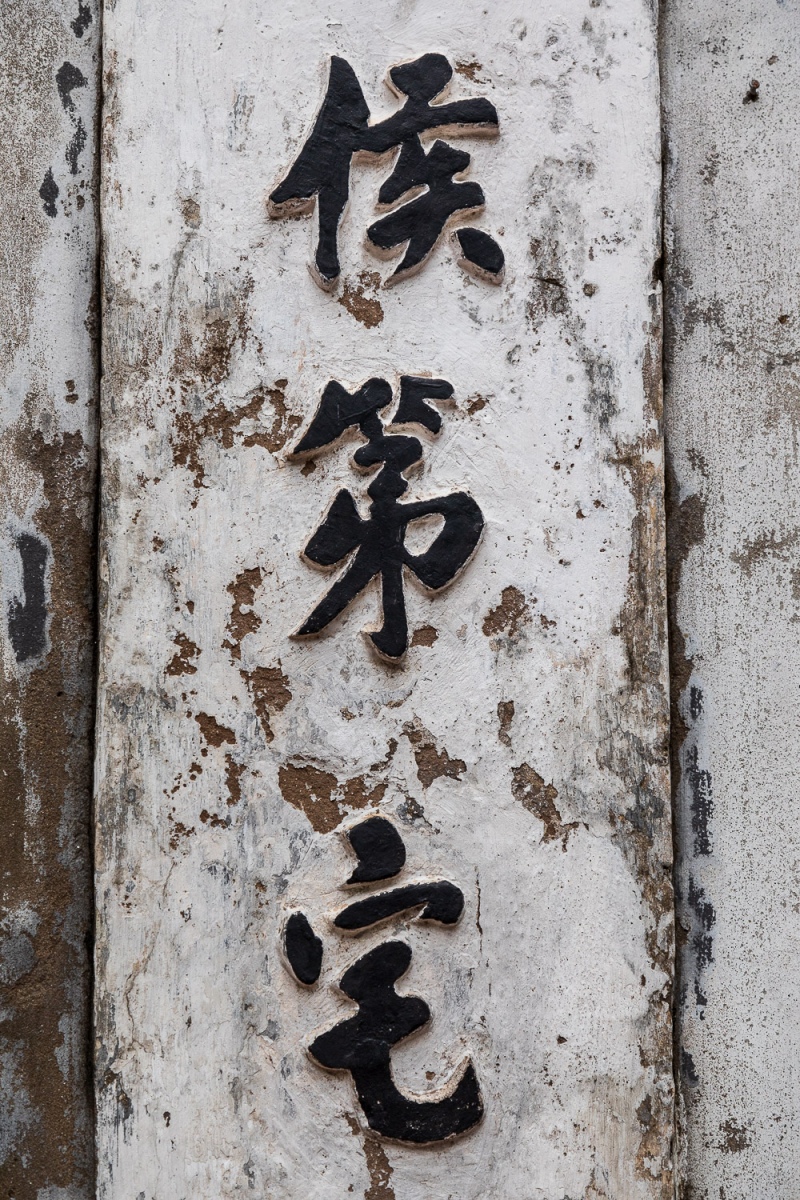 侯第宅